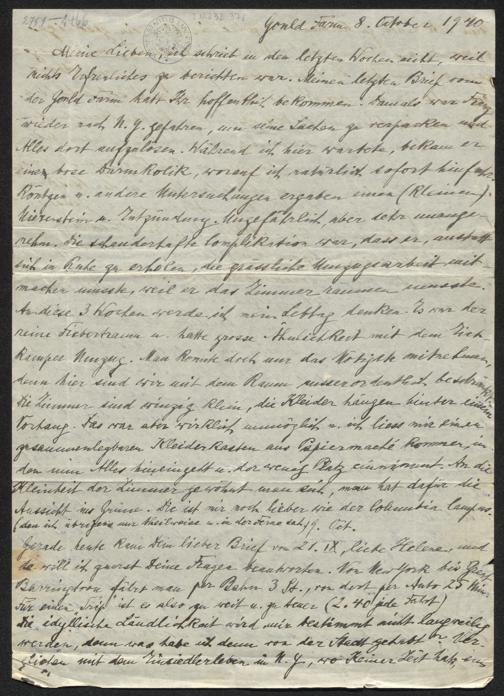 Gould Farm 8. October 1940
Meine Lieben, ich schrieb in den letzten Wochen nicht, weil
nichts Erfreuliches zu berichten war. Meinen letzten Brief von
der Gould Farm habt Ihr hoffentlich bekommen. Damals war Franz
wieder nach N.Y. gefahren, um seine Sachen zu verpacken und
Alles dort aufzulösen. Während ich hier wartete, bekam er
eine böse Darmkolik, worauf ich natürlich sofort hinfuhr.
Röntgen u. andere Untersuchungen ergaben einen (kleinen)
Nierenstein u. Entzündung. Ungefährlich, aber sehr unange-
nehm. Die schauderhafte Complikation war, dass er, anstatt
sich in Ruhe zu erholen, die grässliche Umzugsarbeit mit
machen musste, weil er das Zimmer räumen musste.
An diese 3 Wochen werde ich mein Lebtag denken. Es war der
reine Fiebertraum u. hatte grosse Ähnlichkeit mit dem
Umzug. Man konnte doch nur das Nötigste mitnehmen,
denn hier sind wir mit dem Raum ausserordentlich beschränkt.
Die Zimmer sind winzig klein, die Kleider hängen hinter einem
Vorhang. Das war aber wirklich unmöglich u. ich liess mir einen
zusammenlegbaren Kleiderkasten aus Papiermaché kommen, in
den nun Alles hineingeht u. der wenig Platz einnimmt. An die
Kleinheit der Zimmer gewöhnt man sich, man hat dafür die
Aussicht ins Grüne. Die ist mir noch lieber wie der Columbia Campus
(den ich übrigens nur theilweise u. in der Ferne sah) 9. Oct.
Gerade heute kam Dein lieber Brief von 21. IX, liebe Helene, und
da will ich zuerst Deine Fragen beantworten. Von New York bis Great
Barrington fährt man per Bahn 3 St., von dort per Auto 25 Min.
Für einen Trip ist es also zu weit u. zu teuer (2.40 jede Fahrt)
Die idyllische Ländlichkeit wird mir bestimmt nicht langweilig
werden, denn was habe ich denn von der Stadt gehabt? Ver-
glichen mit dem Einsiedlerleben in N.Y., wo keiner Zeit hat,